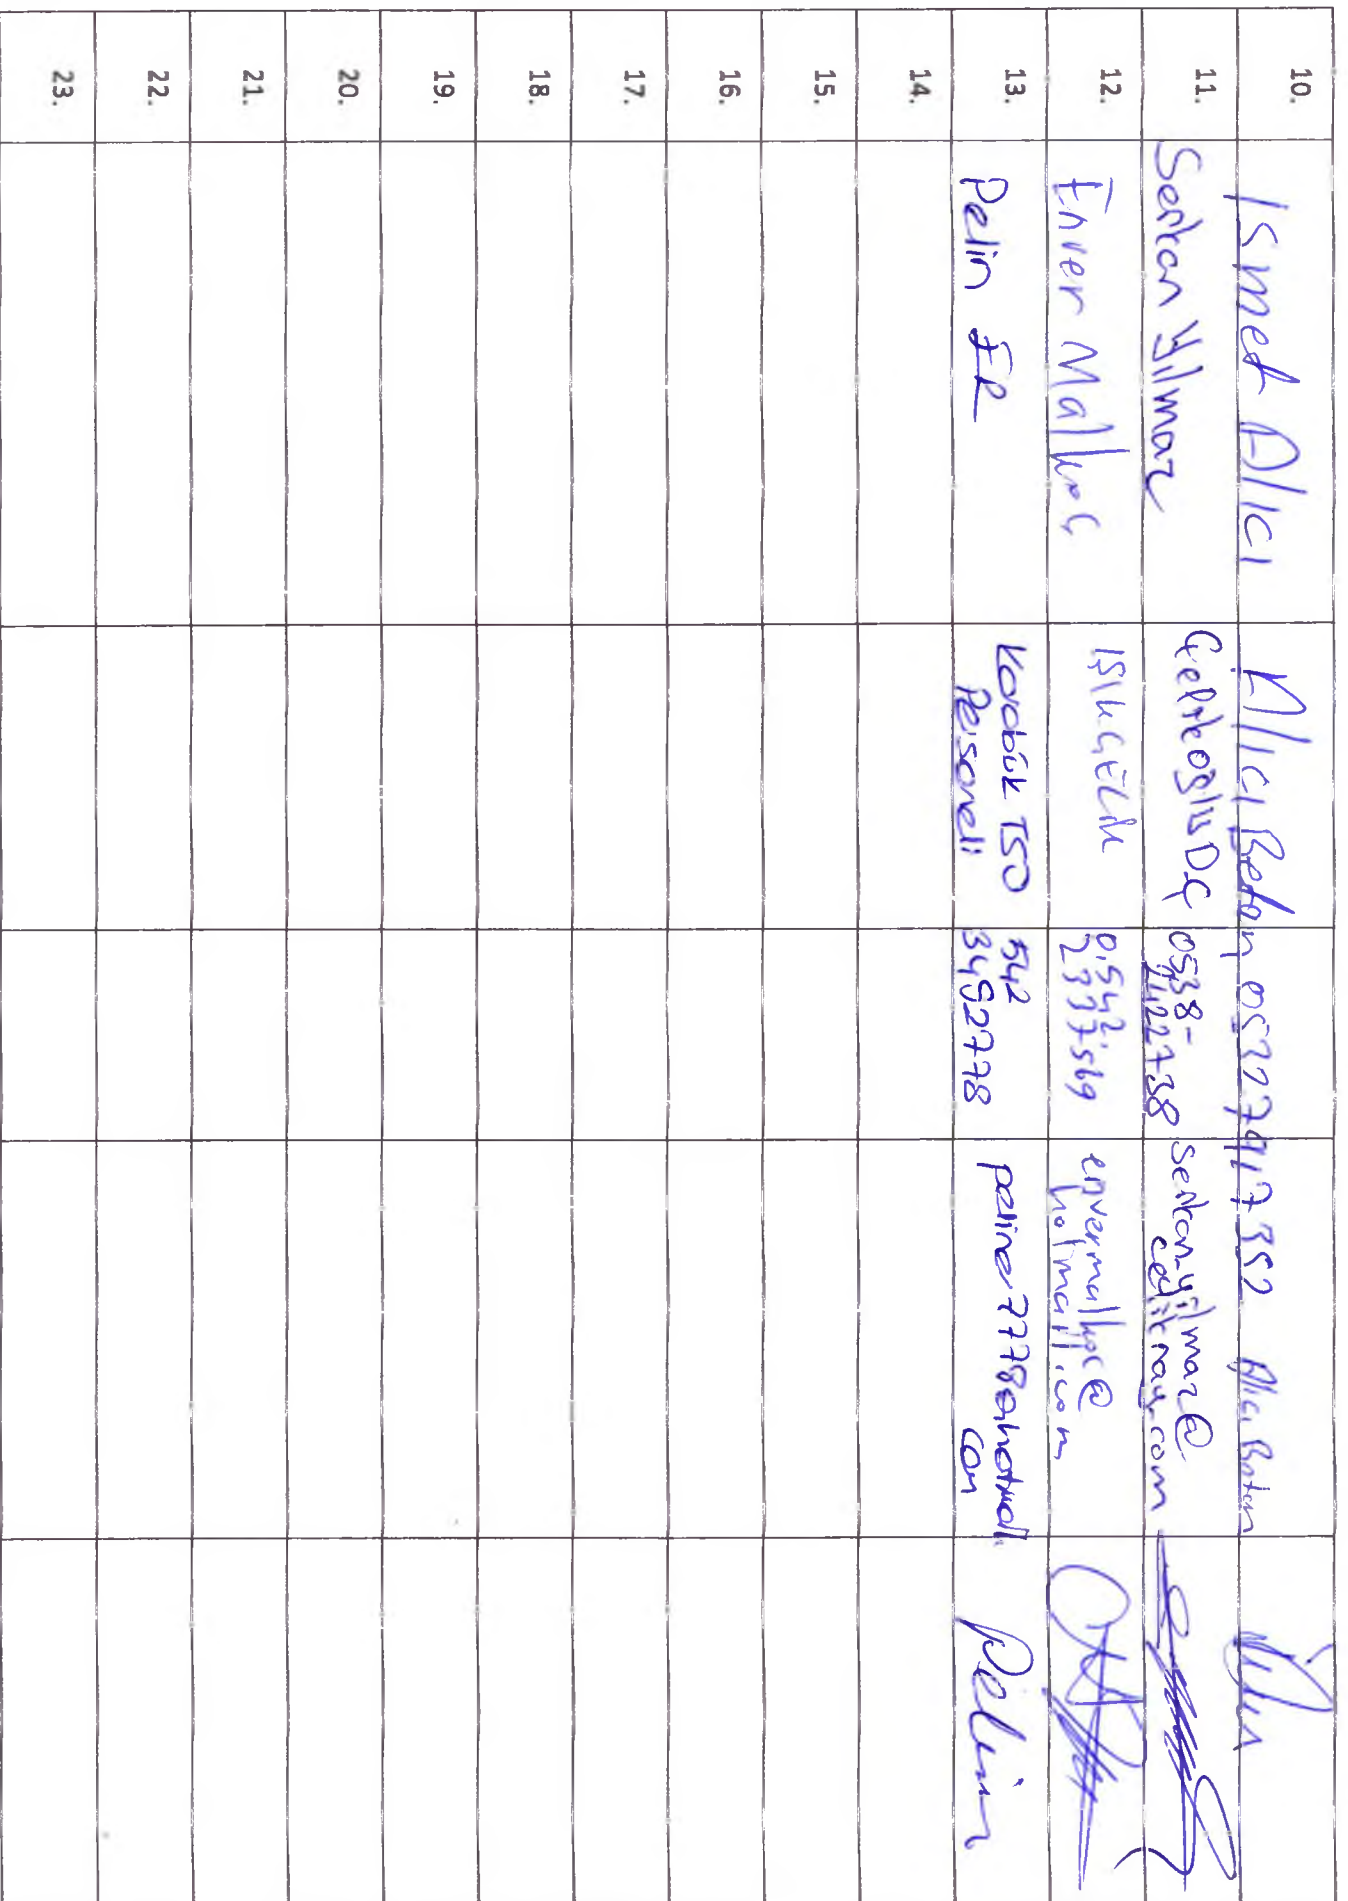 10. İsmet Alıcı Alıcı Beton 05327917352 Alıcı Beton
11. Serkan Yılmaz Çelikoğlu DÇ 0538-
4422738 serkan.yilmaz@
celikray.com
12. Enver Malkoç IŞIKGELİK 0.542.
2337569 envermalkoc@
hotmail.com
13. Pelin ER Karabük TSO
Personeli 542
3492778 peliner7778@hotmail.
com Pelin
14.
15.
16.
17.
18.
19.
20.
21.
22.
23.